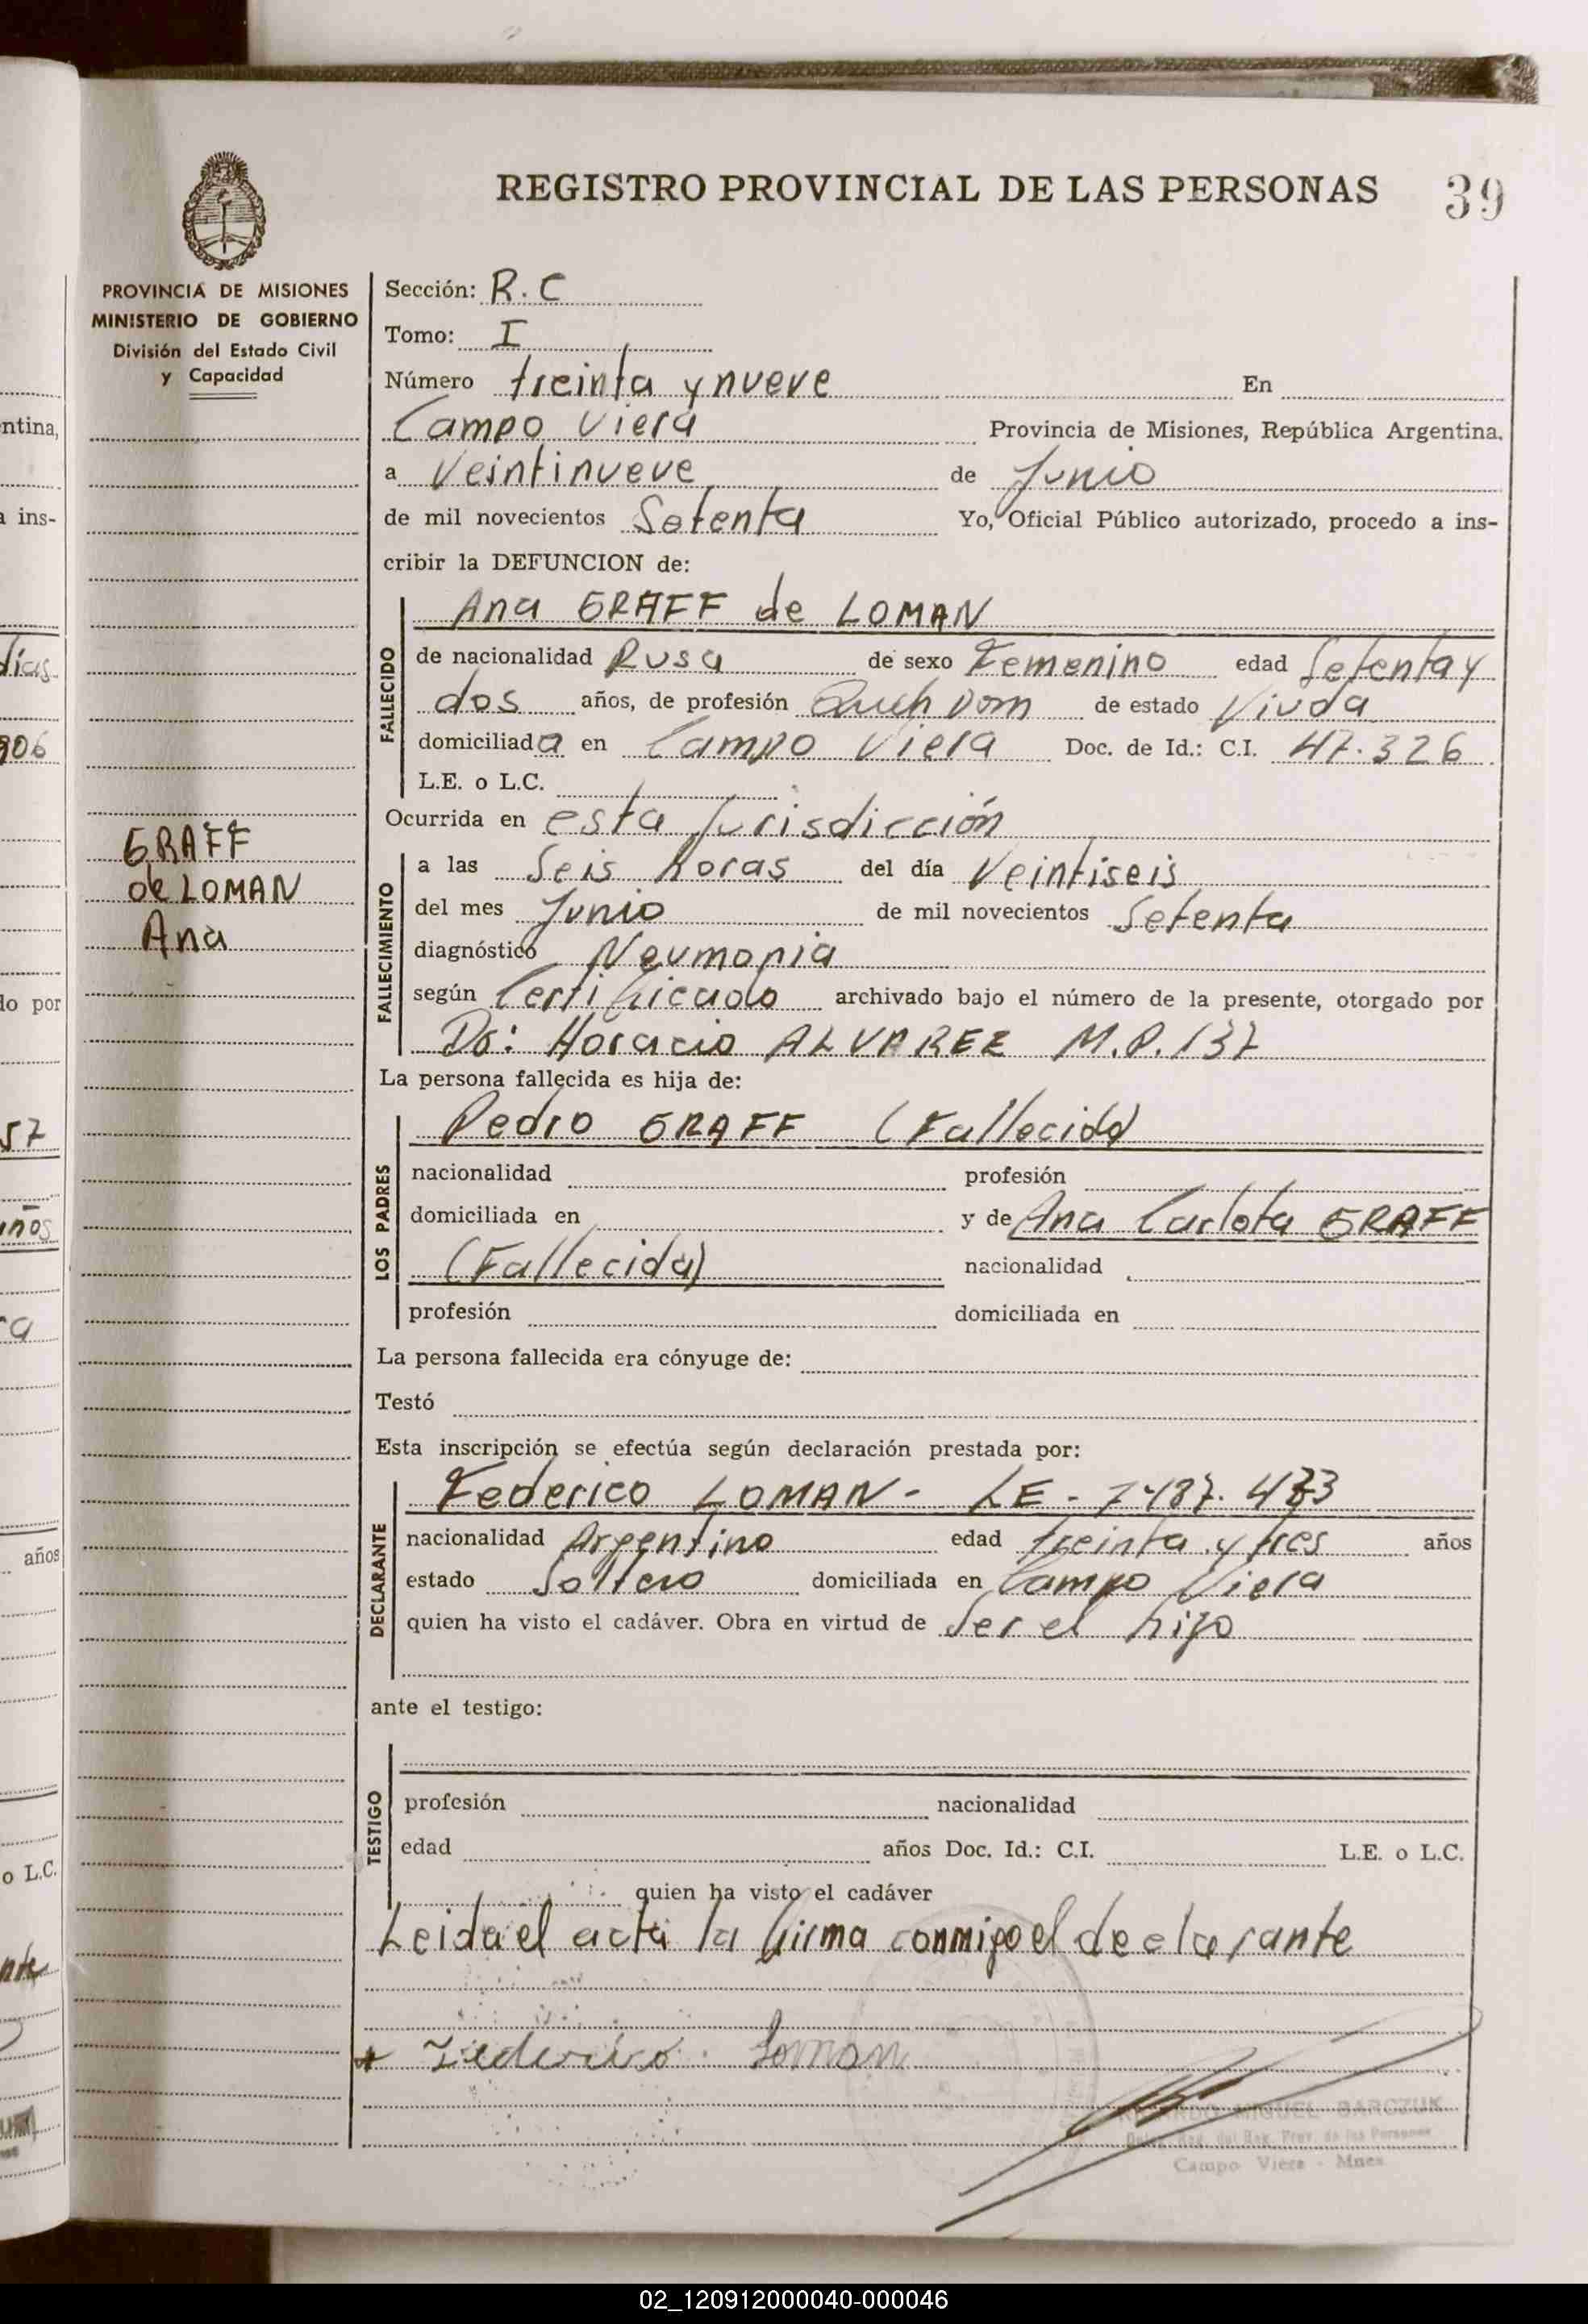 REGISTRO PROVINCIAL DE LAS PERSONAS 39
PROVINCIA DE MISIONES
MINISTERIO DE GOBIERNO
División del Estado Civil
y Capacidad
Sección: R.C
Tomo: I
Número treinta y nueve En
Campo Viera Provincia de Misiones, República Argentina.
a Veintinueve de Junio
de mil novecientos Setenta Yo, Oficial Público autorizado, procedo a ins-
cribir la DEFUNCION de:
FALLECIDO
Ana GRAFF de LOMAN
de nacionalidad Rusa de sexo Femenino edad Setenta y
dos años, de profesión Queh Dom de estado Viuda
domiciliada en Campo Viera Doc. de Id.: C.I. 47.326
L.E. o L.C.
Ocurrida en esta Jurisdicción
FALLECIMIENTO
a las Seis horas del día Veintiseis
del mes Junio de mil novecientos Setenta
diagnóstico Neumonia
según Certificado archivado bajo el número de la presente, otorgado por
Dr: Horacio ALVAREZ M.P. 137
GRAFF
de LOMAN
Ana
La persona fallecida es hija de:
LOS PADRES
Pedro GRAFF (Fallecido)
nacionalidad profesión
domiciliada en y de Ana Carlota GRAFF
(Fallecida) nacionalidad
profesión domiciliada en
La persona fallecida era cónyuge de:
Testó
Esta inscripción se efectúa según declaración prestada por:
DECLARANTE
Federico LOMAN - LE -
nacionalidad Argentino edad treinta y tres años
estado Soltero domiciliada en Campo Viera
quien ha visto el cadáver. Obra en virtud de Ser el hijo
ante el testigo:
TESTIGO
profesión nacionalidad
edad años Doc. Id.: C.I. L.E. o L.C.
quien ha visto el cadáver
Leida el acta la firma conmigo el declarante
Federico Loman
MIGUEL BARCZUK
Campo Viera - Mnes
ntina,
a ins-
días
906
do por
57
años
ra
años
o L.C.
nte
02_120912000040-000046